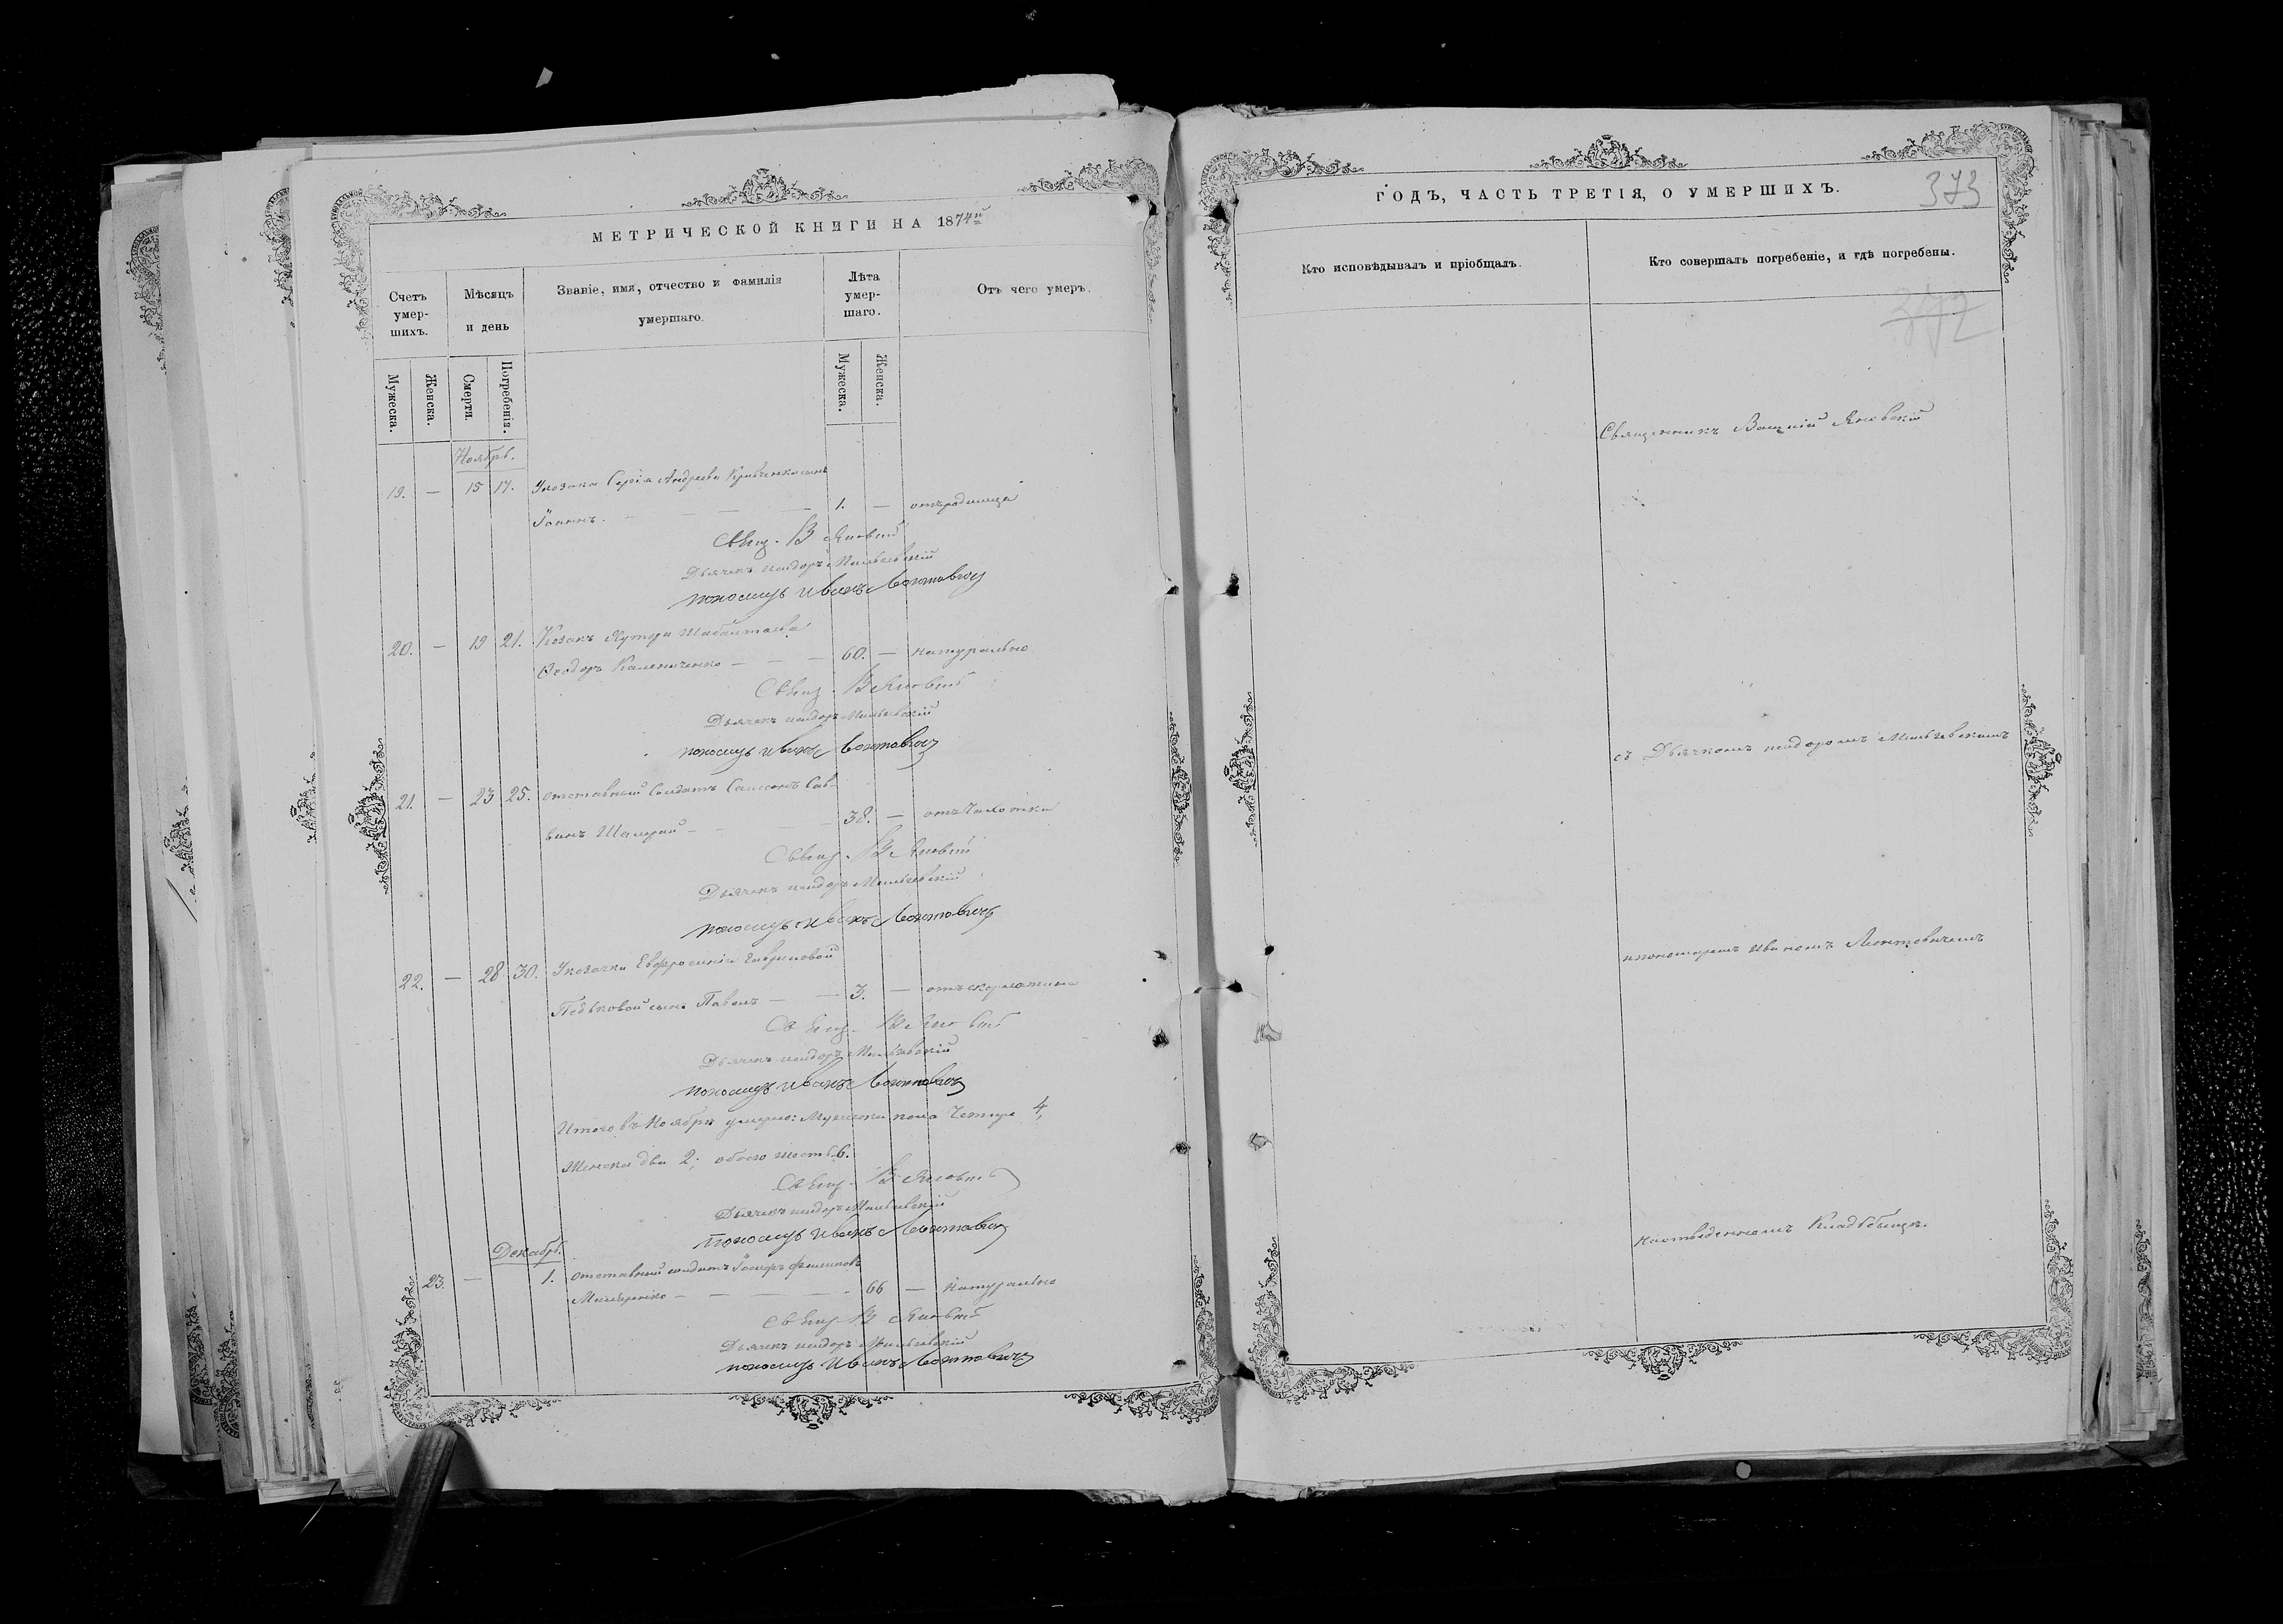 МЕТРИЧЕСКОЙ КНИГИ НА 1874й
Счетъ умер-шихъ.
Мѣсяцъ и день
Званіе, имя, отчество и фамилія умершаго.
Лѣта умер-шаго.
Отъ чего умеръ.
Мужеска.
Женска.
Смерти.
Погребенія.
Мужеска.
Женска.
Ноябрь.
19. — 15 17. Андреева сынъ
Іоаннъ. — — — — 1. — отъ родимца
Свящ. В Яновскій
Дьячекъ Исидоръ
пономарь Иванъ Леонтовичъ
20. — 19 21. Козакъ Хутора
Ѳеодоръ Калениченко — — — 60. — натурально
Свящ. В Яновскій
Дьячекъ Исидоръ
пономарь Иванъ Леонтовичъ
21. — 23 25. отставный Солдатъ Сампсонъ Сав-
винъ — — — 38. — отъ Чахотки
Свящ. В Яновскій
Дьячекъ Исидоръ
пономарь Иванъ Леонтовичъ
22. — 28 30. Евфросиніи Гавриловой
сынъ Павелъ — — 3. — отъ скорлатины
Свящ. В Яновскій
Дьячекъ Исидоръ
пономарь Иванъ Леонтовичъ
Итого въ Ноябрѣ умерло: Мужеска пола Четыре 4,
Женска два 2; обоего шесть 6.
Свящ. В Яновскій
Дьячекъ Исидоръ
Пономарь Иванъ Леонтовичъ
Декабрь.
23. — 1. отставный солдатъ Іосифъ
— — — — 66 — Натурально
Свящ. В Яновскій
Дьячекъ Исидоръ
пономарь Иванъ Леонтовичъ
ГОДЪ, ЧАСТЬ ТРЕТІЯ, О УМЕРШИХЪ.
373
Кто исповѣдывалъ и пріобщалъ.
Кто совершалъ погребеніе, и гдѣ погребены.
372
Священникъ Яновскій
съ Дьячкомъ Исидоромъ
и пономаремъ Иваномъ Леонтовичемъ
на отведенномъ Кладбищѣ.